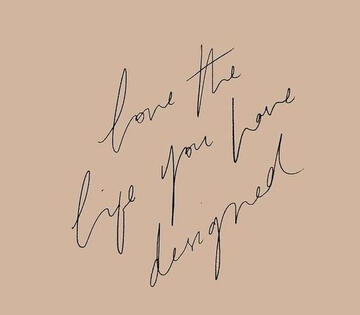 love the
life you have
designed